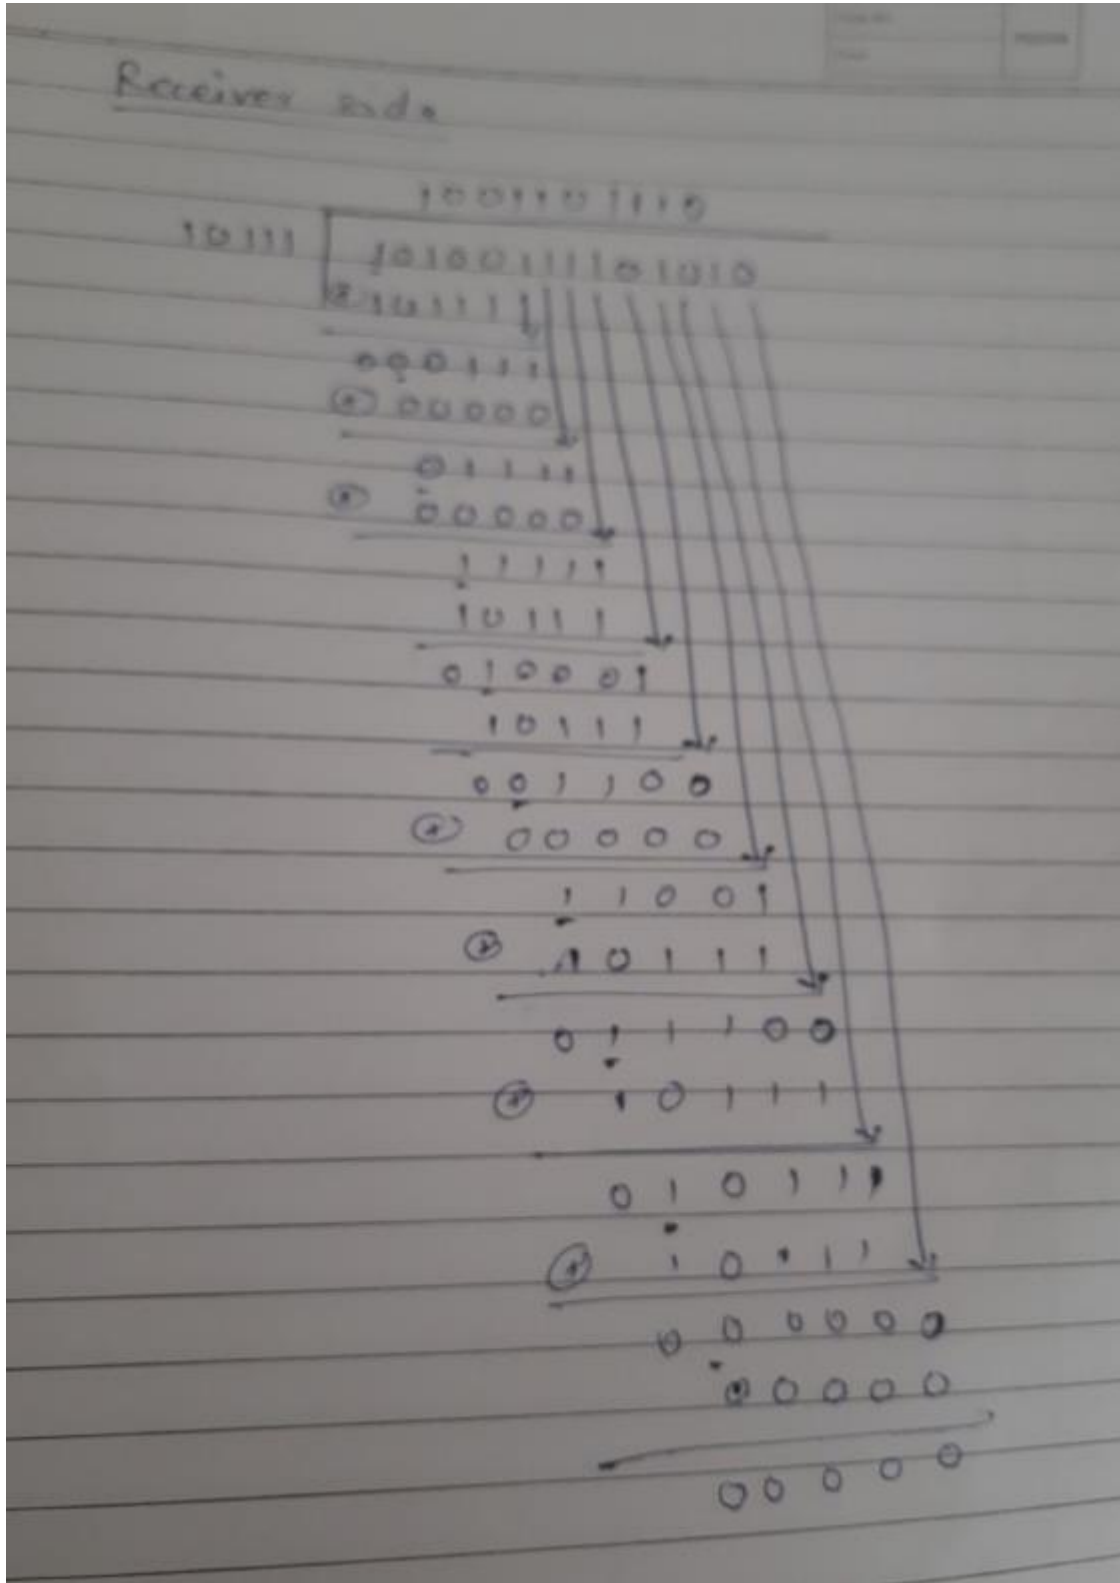 Receiver side
1001101110
10111 10100111101010
⊕ 10111 1
000111
⊕ 00000
01111
⊕ 00000
11111
10111
010001
10111
001100
⊕ 00000
11001
⊕ 10111
011100
⊕ 10111
010111
⊕ 10111
000000
00000
00000